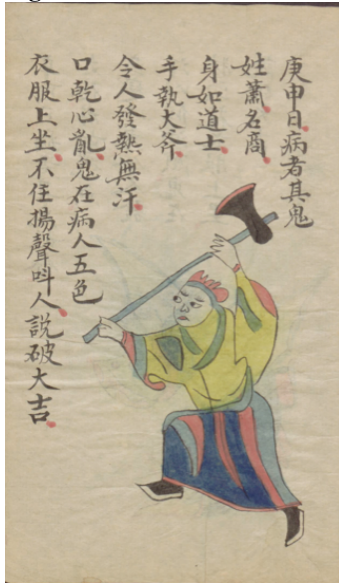 庚申日病者其鬼
姓蕭名商
身如道士
手執大斧
令人發熱無汗
口乾心亂鬼在病人五色
衣服上坐不住揚聲叫人說破大吉